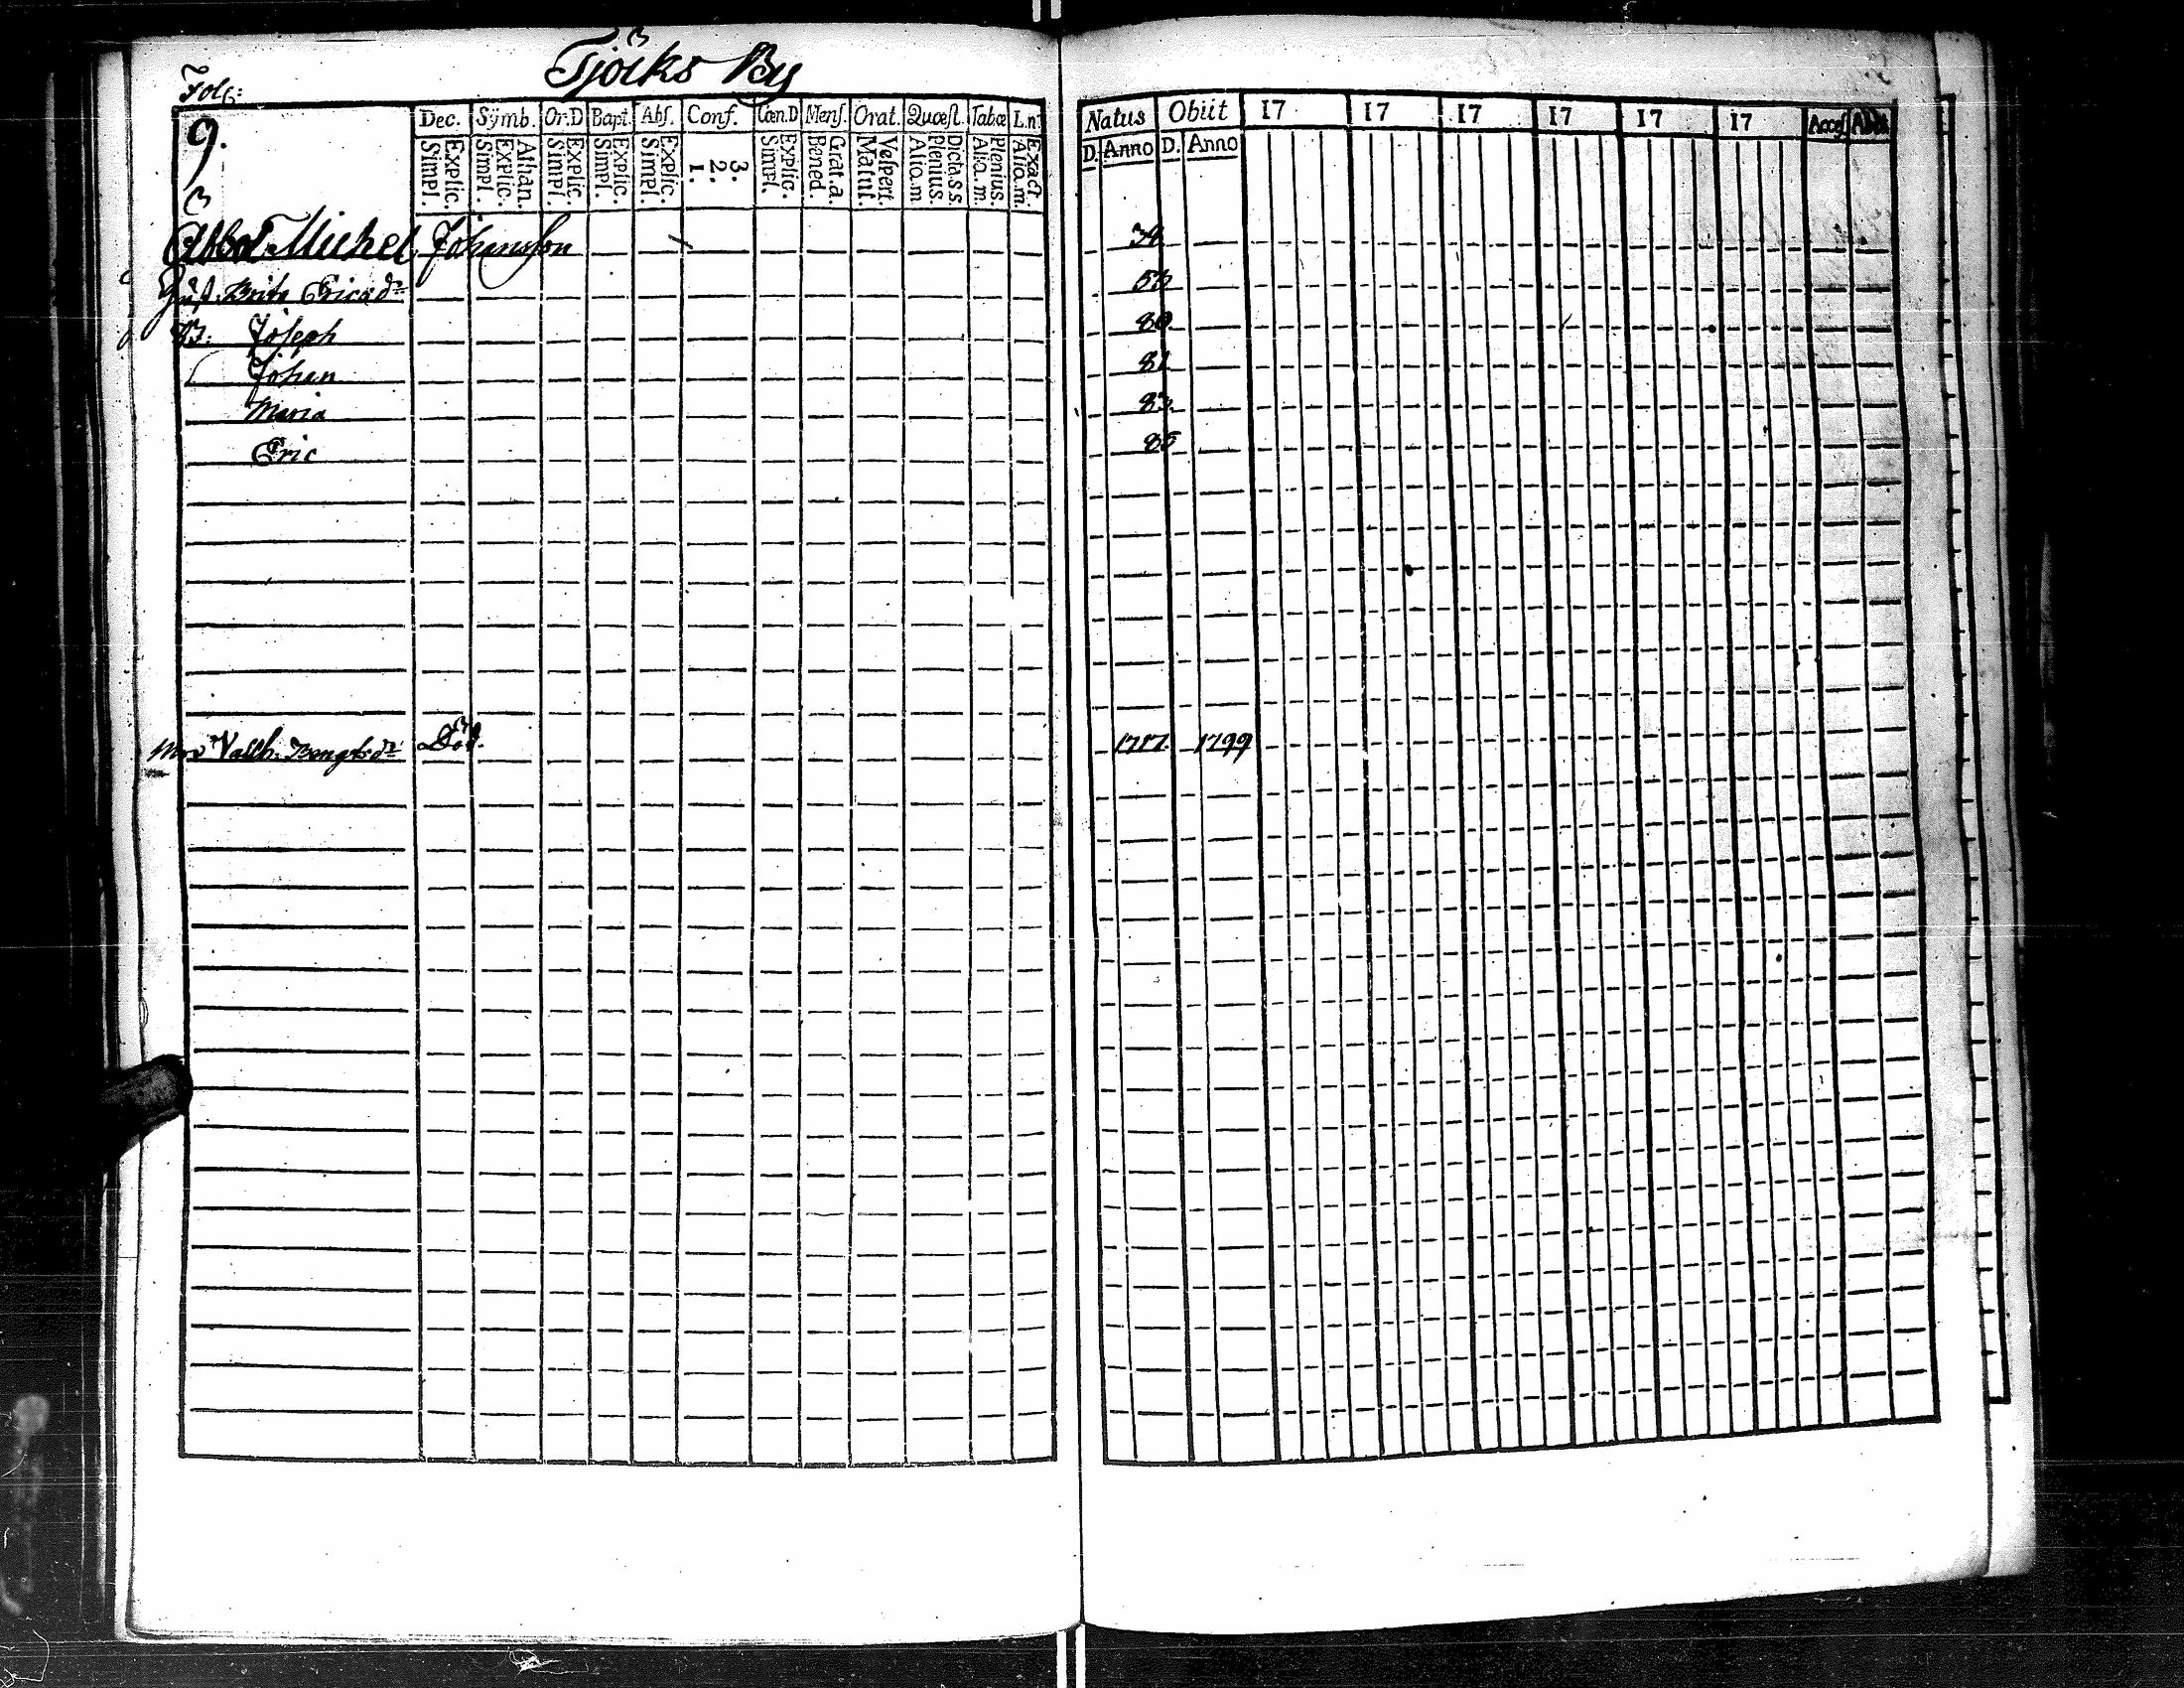 Tjöcks By
Fol:
9.
Dec. Symb. Or.D Bapt. Abs. Conf. Cœn.D Mens. Orat. Quæst. Tabæ L.n.
Explic. Simpl. Athan. Explic. Simpl. Explic. Simpl. Explic. Simpl. Explic. Simpl. 3. 2. 1. Explic. Simpl. Grat.a. Bened. Vespert. Matut. Dicta.s.s. Plenius. Alio.m Plenius. Alio.m. Exact. Alio.m.
Natus Obiit 17 17 17 17 17 17 Acces Abit
D. Anno D. Anno
Michel Johansson 34
Hust. Brita Ericsdr 53
B: Joseph 80
Johan 81
Maria 83.
Eric 85
Valb. Bengtsdr Död. 1717. 1799